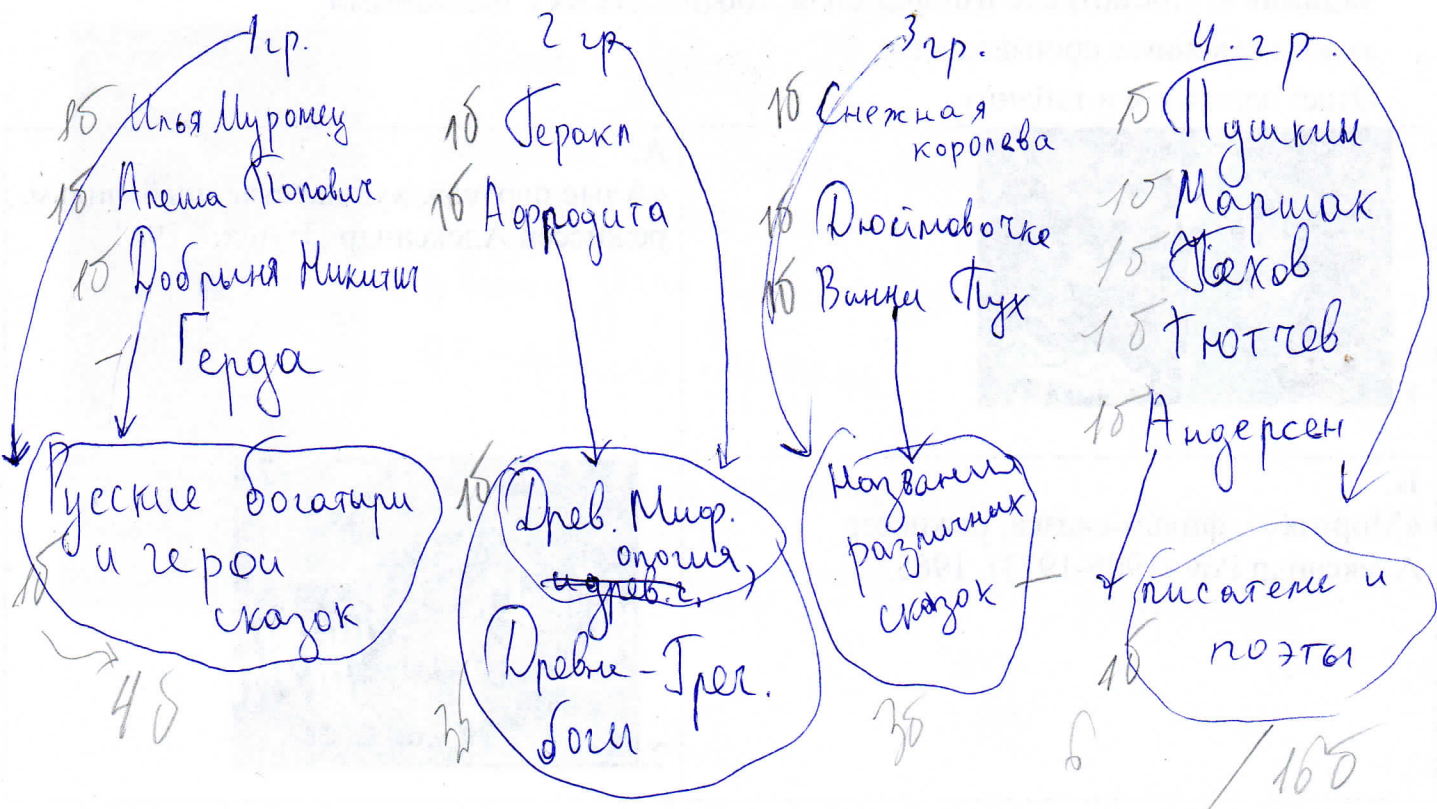 1 гр.
1б Илья Муромец
1б Алеша Попович
1б Добрыня Никитич
– Герда
Русские богатыри
и герои
сказок
1б
4б
2 гр
1б Геракл
1б Афродита
1б Древ. Миф.
ология,
Древне-Грег.
боги
3б
3 гр.
1б Снежная
королева
1б Дюймовочка
1б Винни Пух
Названия
различных
сказок –
3б
4. гр.
1б Пушкин
1б Маршак
1б Чехов
1б Тютчев
1б Андерсен
писатели и
поэты
1б
6
/ 16б